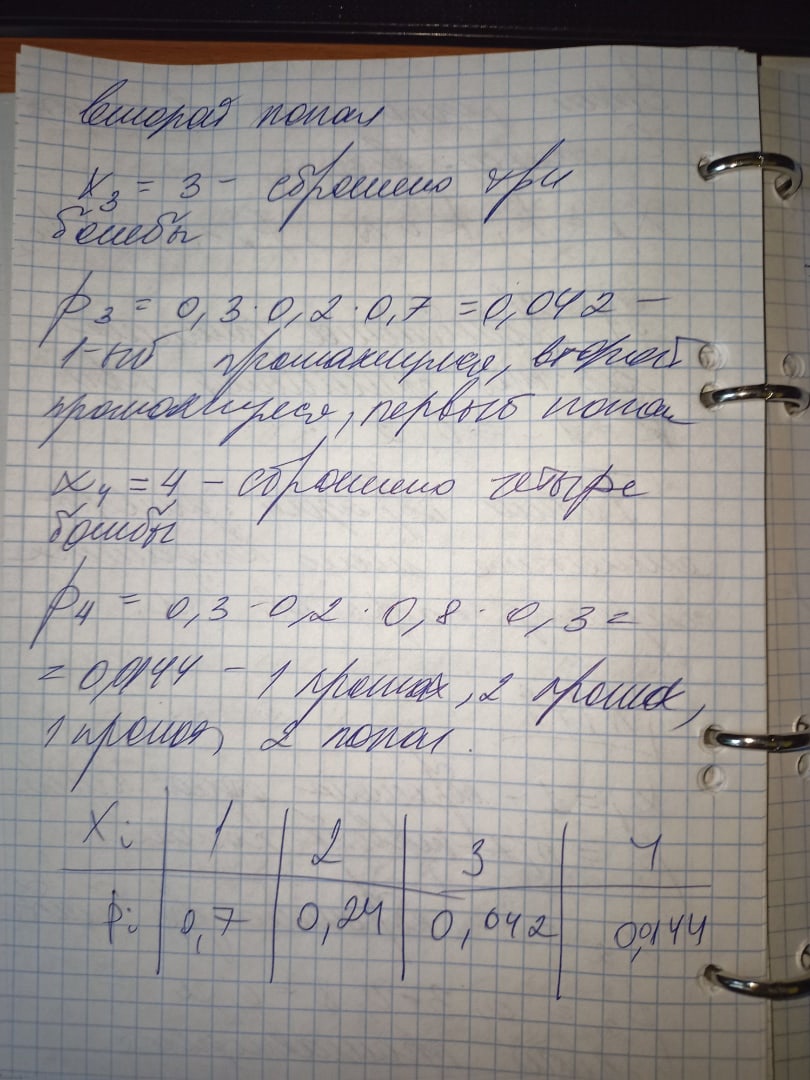 второй попал
x₃ = 3 - сброшено три
бомбы
p₃ = 0,3 · 0,2 · 0,7 = 0,042 –
1-ый промахнулся, второй
промахнулся, первый попал
x₄ = 4 - сброшено четыре
бомбы
p₄ = 0,3 · 0,2 · 0,8 · 0,3 =
= 0,0144 - 1 промах, 2 промах,
1 промах, 2 попал.
Xi | 1 | 2 | 3 | 4
pi | 0,7 | 0,24 | 0,042 | 0,0144